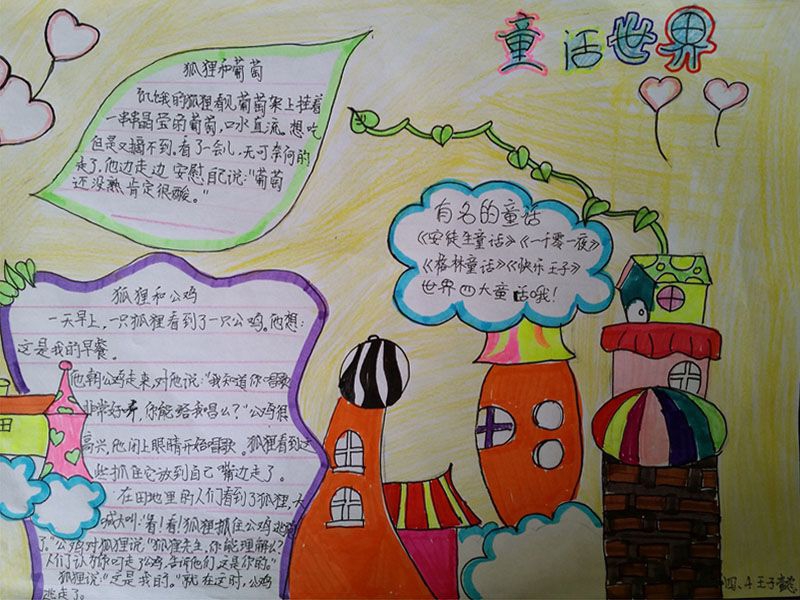 童话世界
狐狸和葡萄
饥饿的狐狸看见葡萄架上挂着
一串串晶莹的葡萄,口水直流。想吃
但是又摘不到。看了一会儿,无可奈何的
走了,他边走边安慰自己说:"葡萄
还没熟肯定很酸。"
有名的童话
《安徒生童话》《一千零一夜》
《格林童话》《快乐王子》
世界四大童话哦!
狐狸和公鸡
一天早上,一只狐狸看到了一只公鸡。他想:
这是我的早餐。
他朝公鸡走来,对他说:"我知道你唱歌
非常好听,你能给我唱么?"公鸡很
高兴,他闭上眼睛开始唱歌。狐狸看到这
些抓住它放到自己嘴边走了。
在田地里的人们看到了狐狸,大
喊大叫:"看!看!狐狸抓住公鸡逃
了。"公鸡对狐狸说:"狐狸先生,你能理解么?
人们认为你叼走了公鸡,告诉他们这是你的。"
狐狸说:"这是我的。"就在这时,公鸡
逃走了。
四、4 王子